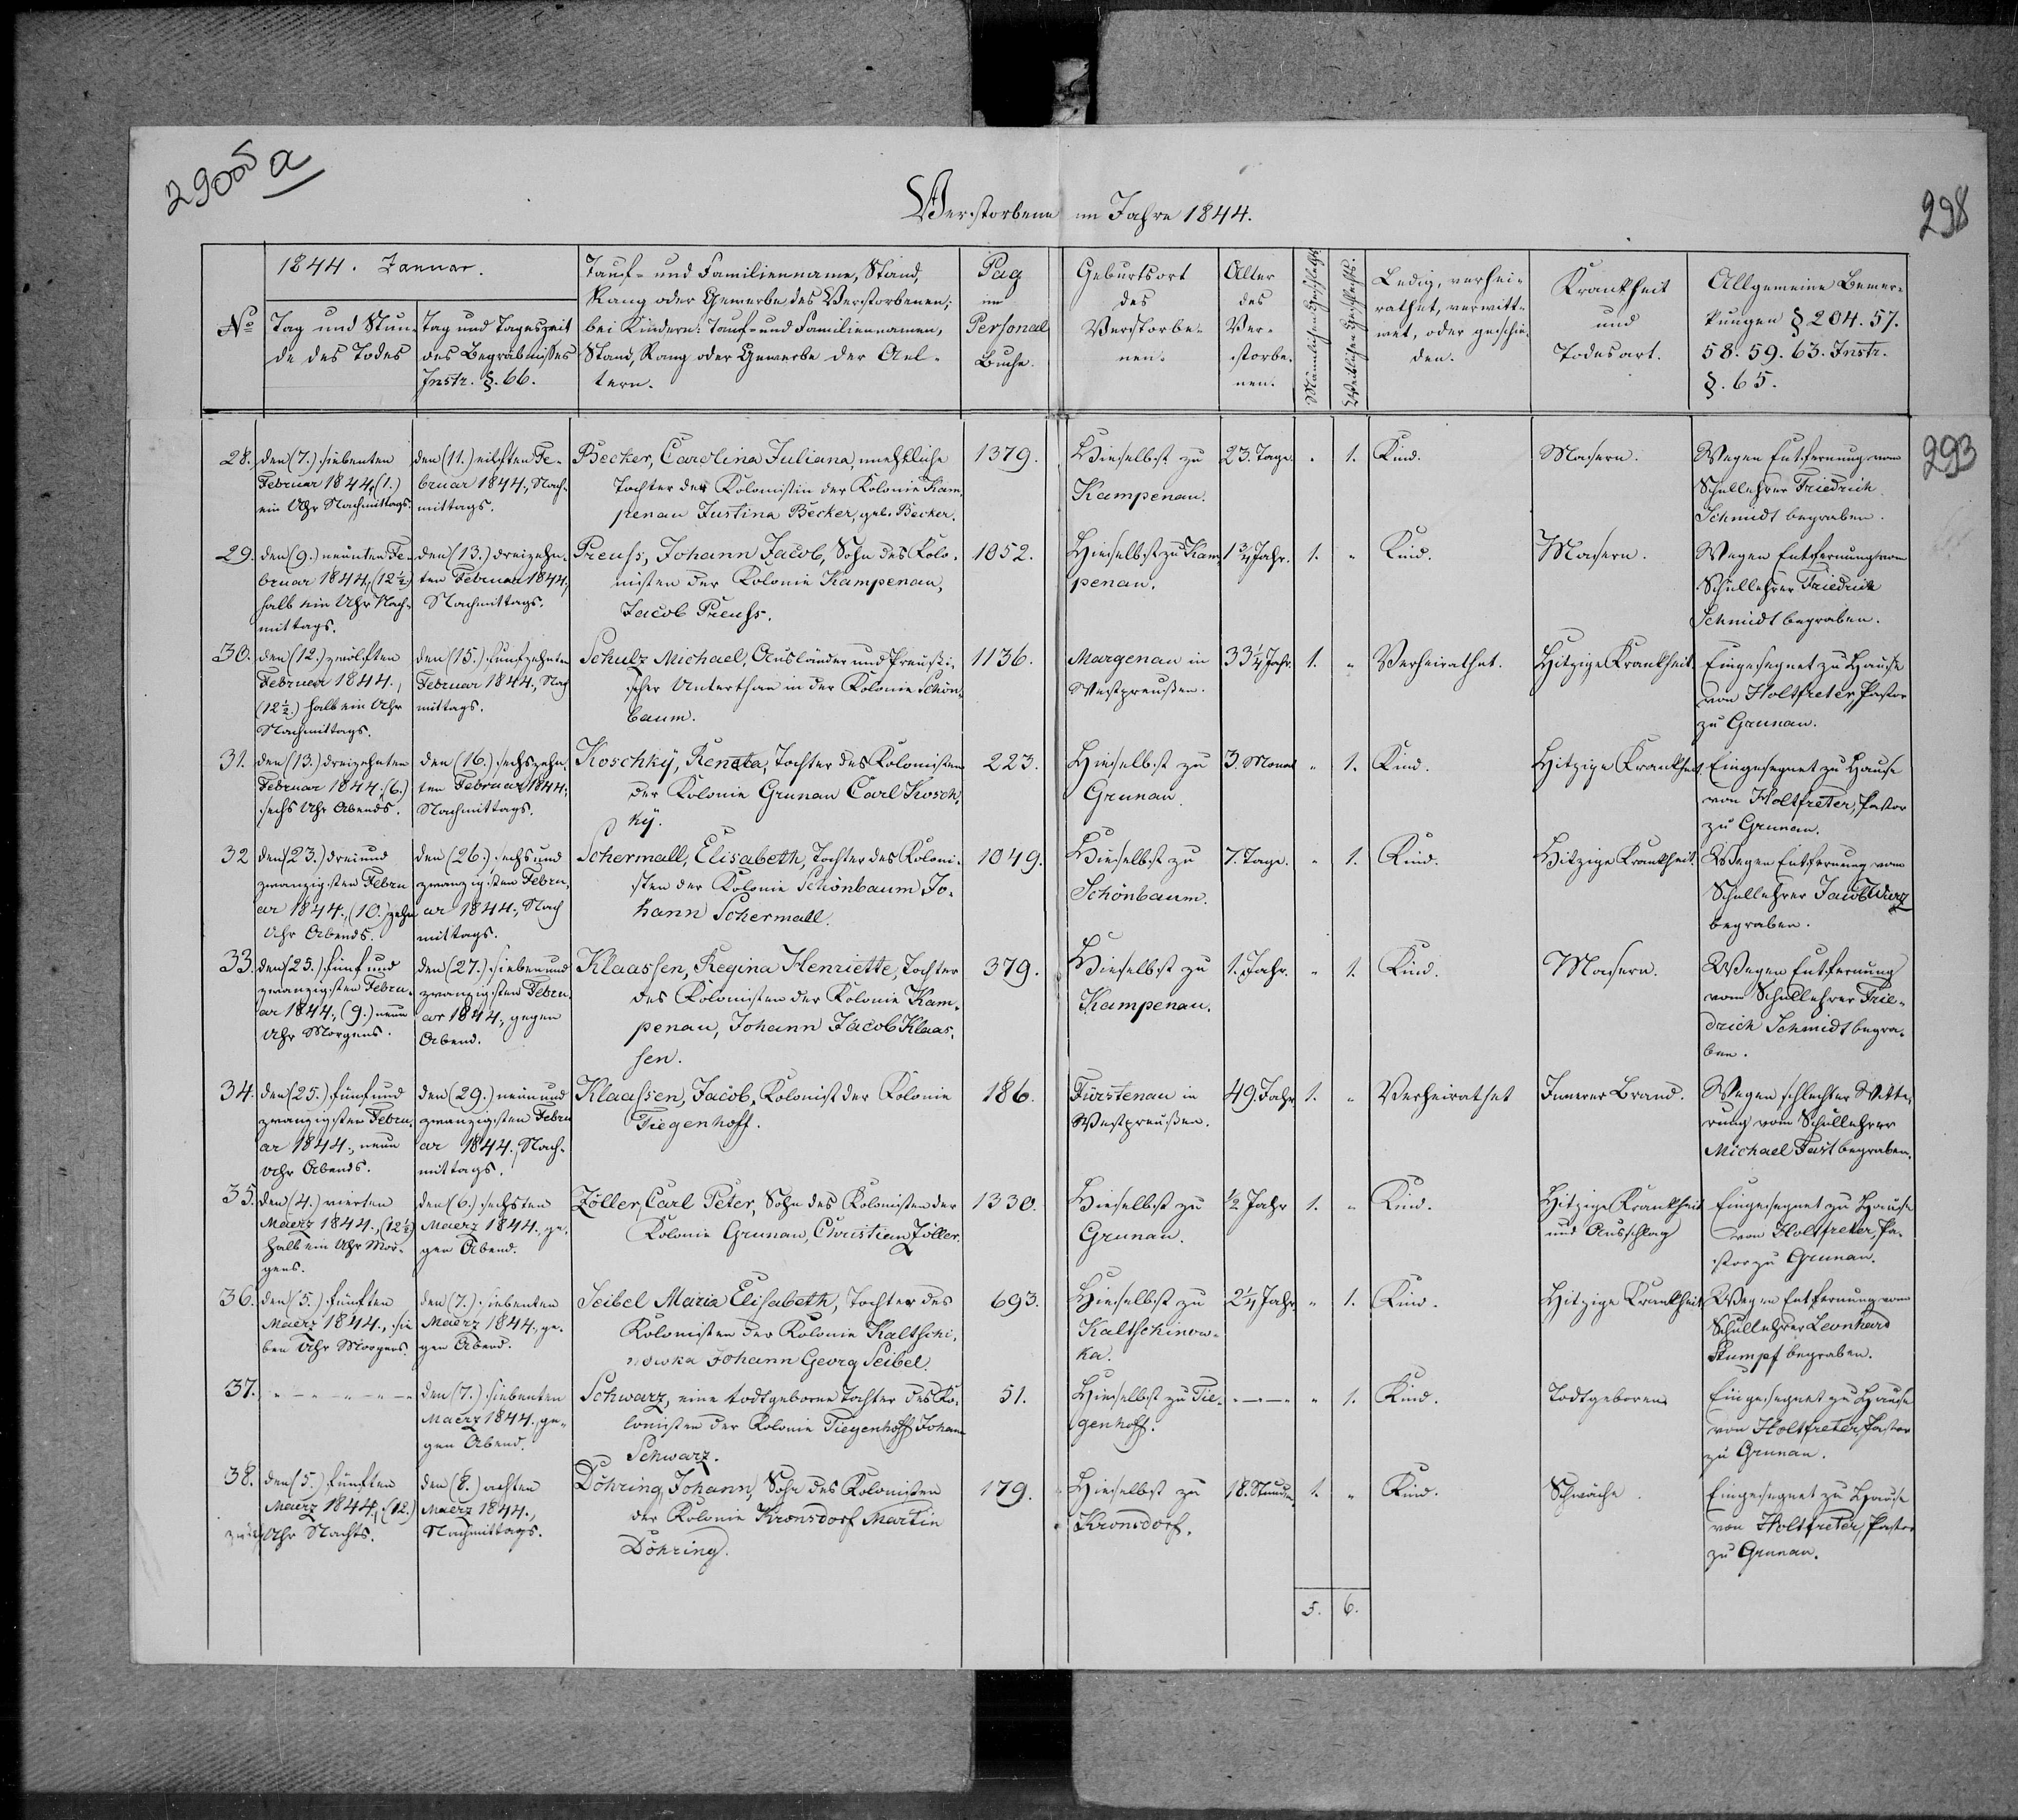 2905 a
298
Verstorbene im Jahre 1844.
1844. Januar.
No
Tag und Stun-
de des Todes
Tag und Tageszeit
des Begräbnisses
Instr. §. 66.
Tauf- und Familienname, Stand,
Rang oder Gewerbe des Verstorbenen;
bei Kindern: Tauf- und Familiennamen,
Stand, Rang oder Gewerbe der Ael-
tern.
Pag
im
Personal
Buche.
Geburtsort
des
Verstorbe-
nen.
Alter
des
Ver-
storbe-
nen.
Männlichen Geschlechts.
Weiblichen Geschlechts.
Ledig, verhei-
rathet, verwitt-
wet, oder geschie-
den.
Krankheit
und
Todesart.
Allgemeine Bemer-
kungen § 204. 57.
58. 59. 63. Instr.
§. 65.
293
28.
den (7.) siebenten
Februar 1844, (1.)
ein Uhr Nachmittags.
den (11.) eilften Fe-
bruar 1844., Nach-
mittags.
Becker, Carolina Juliana, uneheliche
Tochter der Kolonistin der Kolonie Kam-
penau Justina Becker, geb. Becker.
1379.
Hieselbst zu
Kampenau.
23. Tage.
" 1.
Kind.
Masern.
Wegen Entfernung vom
Schullehrer Friedrich
Schmidt begraben.
29.
den (9.) neunten Fe-
bruar 1844, (12½)
halb ein Uhr Nach-
mittags.
den (13.) dreizehn-
ten Februar 1844,
Nachmittags.
Preuss, Johann Jacob, Sohn des Kolo-
nisten der Kolonie Kampenau,
Jacob Preuss.
1052.
Hieselbst zu Kam-
penau.
1¾ Jahr.
1. "
Kind.
Masern.
Wegen Entfernung vom
Schullehrer Friedrich
Schmidt begraben.
30.
den (12.) zwölften
Februar 1844.,
(12½.) halb ein Uhr
Nachmittags.
den (15.) fünfzehnten
Februar 1844., Nach
mittags.
Schulz Michael, Ausländer und Preußi-
scher Unterthan in der Kolonie Schön-
baum.
1136.
Margenau in
Westpreußen.
33¼ Jahr.
1. "
Verheirathet.
Hitzige Krankheit.
Eingesegnet zu Hause
von Holtfreter, Pastor
zu Grunau.
31.
den (13.) dreizehnten
Februar 1844. (6.)
sechs Uhr Abends.
den (16.) sechszehn-
ten Februar 1844.
Nachmittags.
Koschky, Renata, Tochter des Kolonisten
der Kolonie Grunau Carl Kosch-
ky.
223.
Hieselbst zu
Grunau.
3. Monat
" 1.
Kind.
Hitzige Krankheit.
Eingesegnet zu Hause
von Holtfreter, Pastor
zu Grunau.
32
den (23.) dreiund
zwanzigsten Febru
ar 1844., (10.) zehn
Uhr Abends.
den (26.) sechs und
zwanzigsten Febru-
ar 1844., Nach
mittags.
Schermall, Elisabeth, Tochter des Koloni-
sten der Kolonie Schönbaum Jo-
hann Schermall.
1049.
Hieselbst zu
Schönbaum.
7. Tage.
" 1.
Kind.
Hitzige Krankheit.
Wegen Entfernung vom
Schullehrer Jacob
begraben.
33.
den (25.) fünf und
zwanzigsten Febru-
ar 1844., (9.) neun
Uhr Morgens.
den (27.) sieben und
zwanzigsten Febru-
ar 1844., gegen
Abend.
Klaassen, Regina Henriette, Tochter
des Kolonisten der Kolonie Kam-
penau, Johann Jacob Klaas-
sen.
379.
Hieselbst zu
Kampenau.
1. Jahr.
" 1.
Kind.
Masern.
Wegen Entfernung
vom Schullehrer Frie-
drich Schmidt begra-
ben.
34.
den (25.) fünf und
zwanzigsten Febru-
ar 1844., neun
Uhr Abends.
den (29.) neun und
zwanzigsten Febru
ar 1844., Nach-
mittags.
Klaassen, Jacob, Kolonist der Kolonie
Tiegenhoff.
186.
Fürstenau in
Westpreußen.
49. Jahr
1. "
Verheirathet
Innerer Brand.
Wegen schlechter Witte-
rung vom Schullehrer
Michael Fast begraben.
35.
den (4.) vierten
Maerz 1844., (12½)
halb ein Uhr Mor-
gens.
den (6.) sechsten
Maerz 1844., ge-
gen Abend.
Zöller, Carl Peter, Sohn des Kolonisten der
Kolonie Grunau, Christian Zöller.
1330.
Hieselbst zu
Grunau.
½ Jahr
1. "
Kind.
Hitzige Krankheit
und Ausschlag
Eingesegnet zu Hause
von Holtfreter, Pa-
stor zu Grunau.
36.
den (5.) fünften
Maerz 1844., sie
ben Uhr Morgens.
den (7.) siebenten
Maerz 1844., ge-
gen Abend.
Seibel Maria Elisabeth, Tochter des
Kolonisten der Kolonie Kaltschi-
nowka Johann Georg Seibel.
693.
Hieselbst zu
Kaltschinow-
ka.
2¼ Jahr
" 1.
Kind.
Hitzige Krankheit
Wegen Entfernung vom
Schullehrer Leonhard
Stumpf begraben.
37.
" — " — " — " —
den (7.) siebenten
Maerz 1844., ge-
gen Abend.
Schwarz, eine todtgeborne Tochter des Ko-
lonisten der Kolonie Tiegenhoff Johann
Schwarz.
51.
Hieselbst zu Tie-
genhoff.
" — " —
" 1.
Kind.
Todtgeboren
Eingesegnet zu Hause
von Holtfreter, Pastor
zu Grunau.
38.
den (5.) fünften
Maerz 1844., (12.)
zwölf Uhr Nachts.
den (8.) achten
Maerz 1844.,
Nachmittags.
Döhring, Johann, Sohn des Kolonisten
der Kolonie Kronsdorf Martin
Döhring.
179.
Hieselbst zu
Kronsdorf.
18. Stunden
1. "
Kind.
Schwäche.
Eingesegnet zu Hause
von Holtfreter, Pastor
zu Grunau.
5. 6.